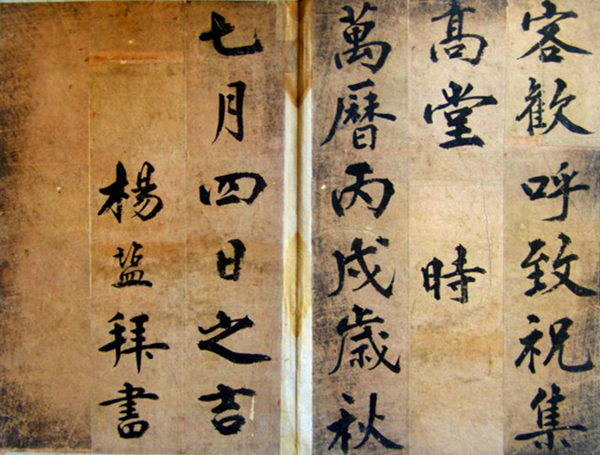 客歡呼致祝集
髙堂 時
萬曆丙戌歲秋
七月四日之吉
楊盐拜書